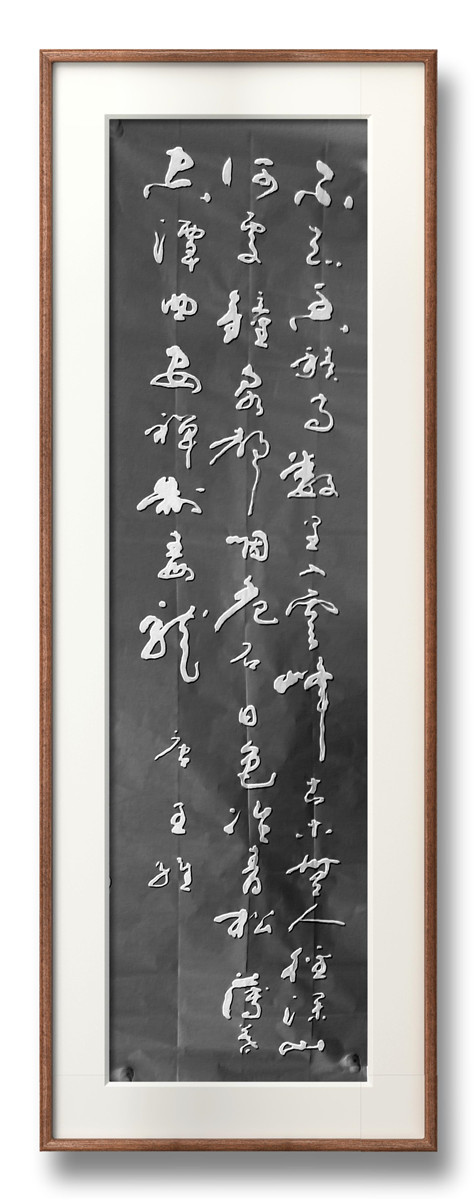 不知香積寺數里入雲峰古木無人徑深山
何處鐘泉聲咽危石日色冷青松薄暮
空潭曲安禪制毒龍 唐王維